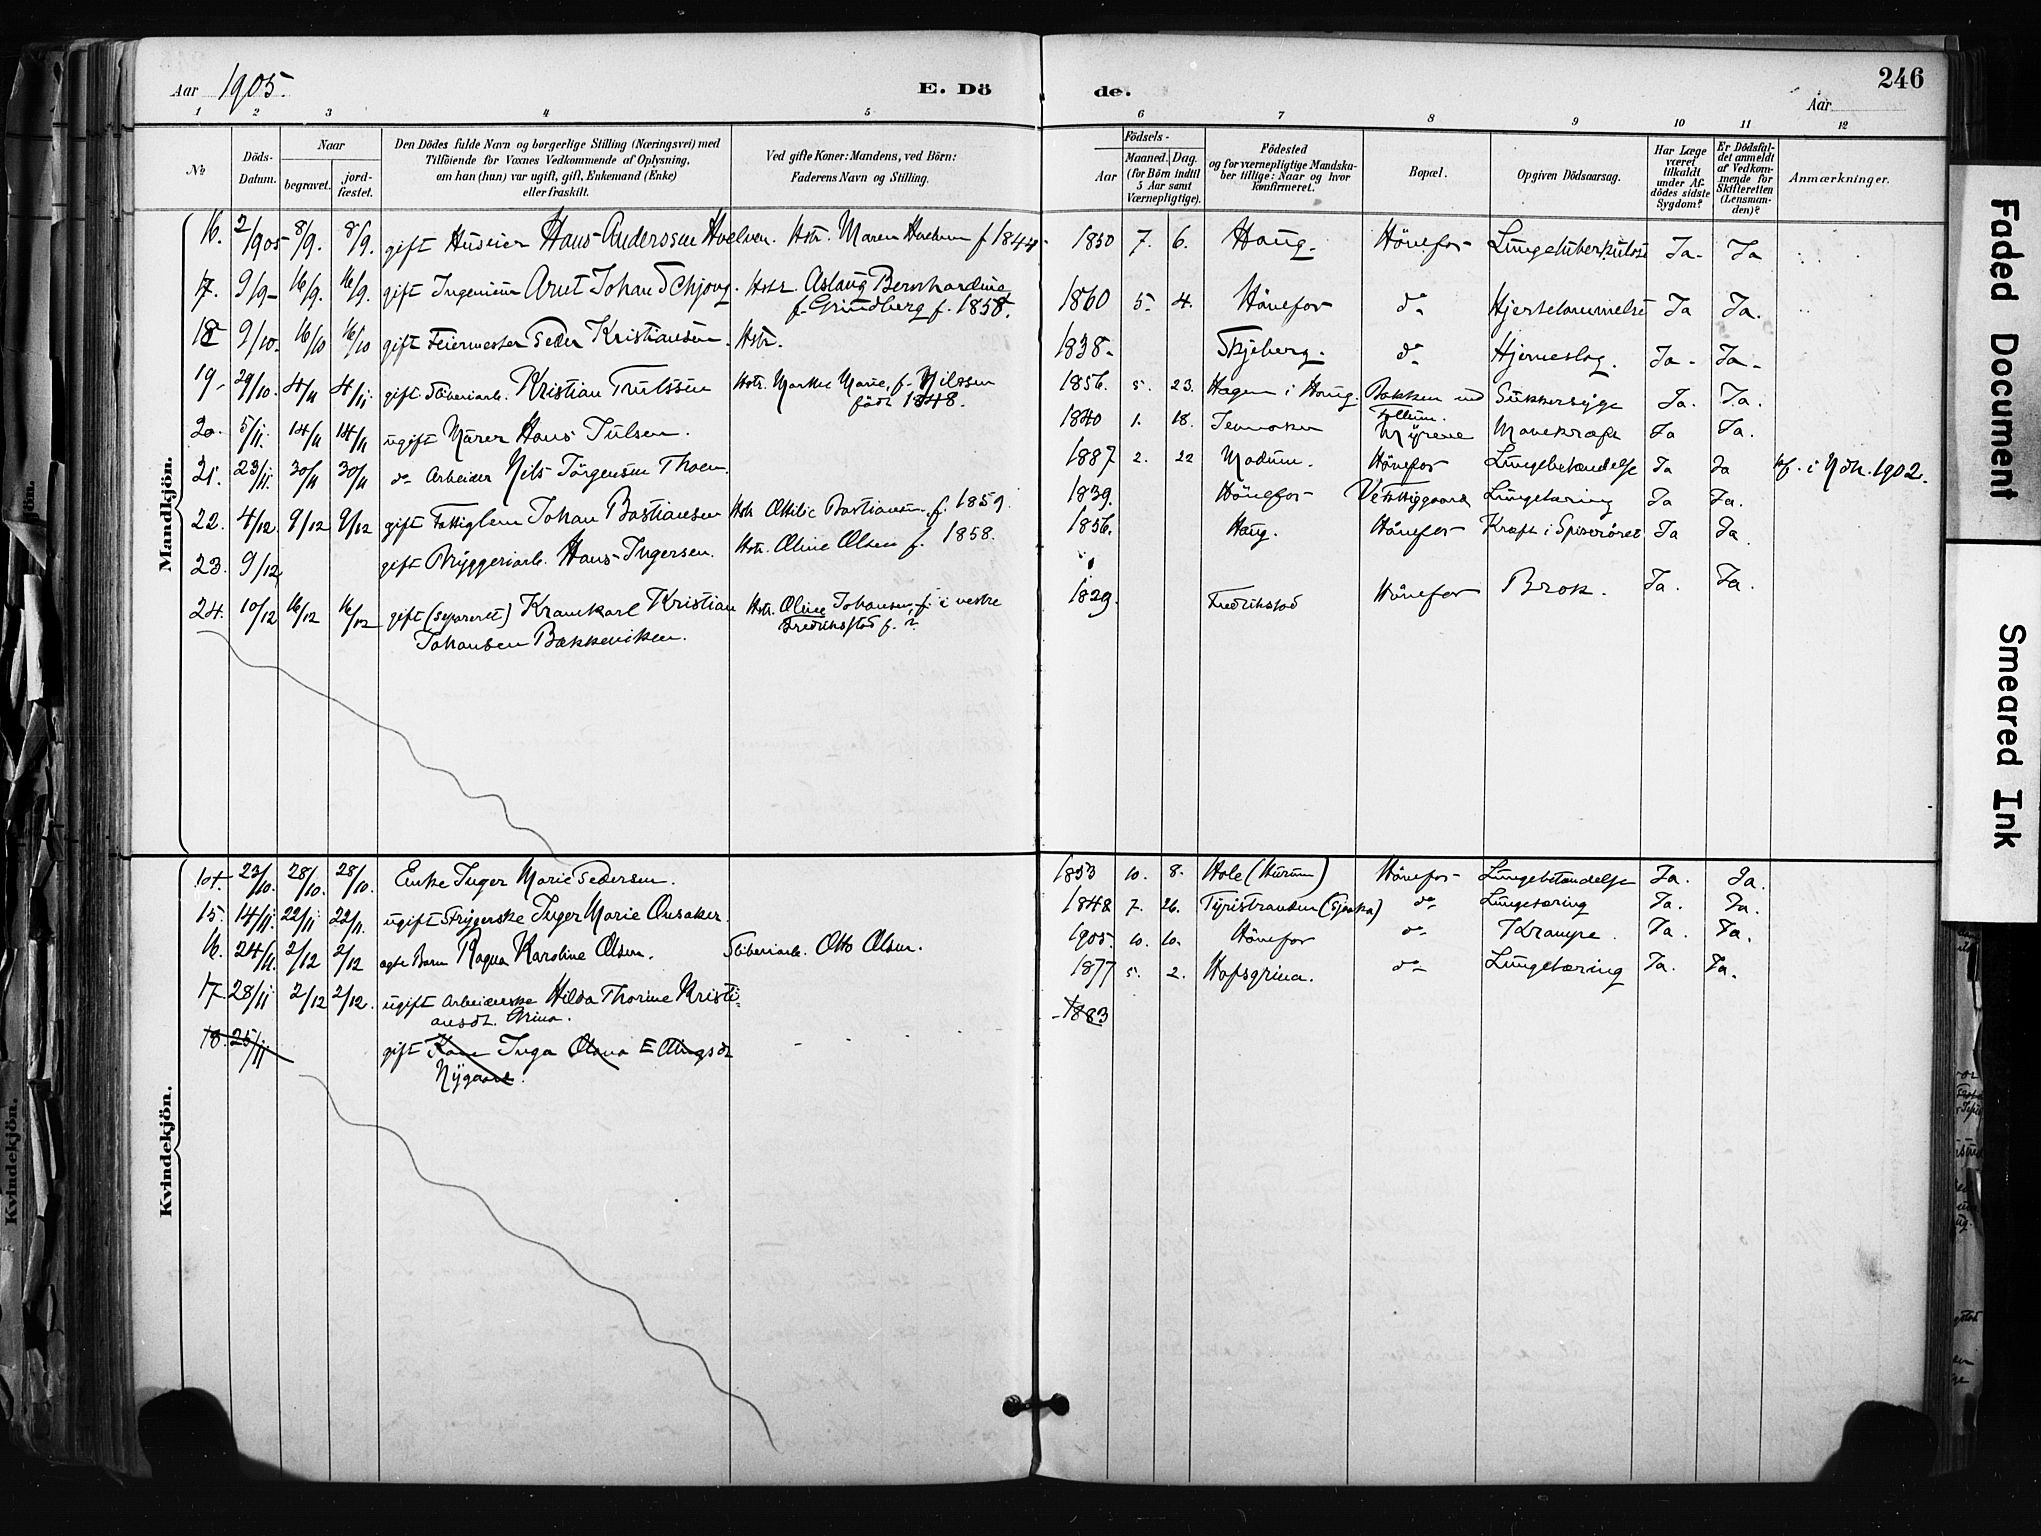 Aar 1905. E. Dö de. 246
Aar
1 2 3 4 5 6 7 8 9 10 11 12
No
Döds-Datum.
Naar
begravet. jordfæstet.
Den Dödes fulde Navn og borgerlige Stilling (Næringsvei) med
Tilföiende for Voxnes Vedkommende af Oplysning,
om han (hun) var ugift, gift, Enkemand (Enke)
eller fraskilt.
Ved gifte Koner: Mandens, ved Börn:
Faderens Navn og Stilling.
Födsels-
Aar Maaned. Dag.
(for Börn indtil
5 Aar samt
Værnepligtige).
Födested
og for værnepligtige Mandska-
ber tillige: Naar og hvor
konfirmeret.
Bopæl.
Opgiven Dödsaarsag.
Har Læge
været
tilkaldt
under Af-
dödes sidste
Sygdom?
Er Dödsfal-
det anmeldt
af Vedkom-
mende for
Skifteretten
(Lensman-
den)?
Anmærkninger.
Mandkjön.
16. 2/9 05 8/9. 8/9. gift Huseier Hans Anderssen Hvelven. Hstr. Maren Hvelven f 1844. 1850 7. 6. Haug. Hönefos Lungetuberkulose Ja. Ja
17. 9/9 16/9. 16/9. gift Ingeniör Arnt Johan Schjong. Hstr. Aslaug Bernhardine
f. Grundberg f. 1858. 1860 5. 4. Hönefos do Hjertelammelse Ja Ja.
18 9/10. 16/10 16/10 gift Feiermester Peder Kristiansen. Hstr. 1838. Skjeberg. do Hjerneslag. Ja. Ja.
19. 29/10. 4/11 4/11 gift Sliberiarb. Kristian Trulssen Hstr. Marthe Marie, f. Nilssen
född 1848. 1856. 5. 23. Hagen i Haug. Bakken ved
Follum. Sukkersyge Ja. Ja.
20. 5/11. 14/11 14/11 ugift Murer Hans Julsen. 1840 1. 18. Jevnaker Myrene Mavekræft Ja Ja.
21. 23/11. 30/11 30/11 do Arbeider Nils Jörgensen Thoen. 1887 2. 22 Modum. Hönefos Lungebetændelse Ja Ja kf. i Ndh. 1902.
22. 4/12. 9/12 9/12 gift Fattiglem Johan Bastiansen Hstr. Ottilie Bastiansen f. 1859. 1839. Hönefos Lungetæring Ja Ja.
23. 9/12 gift Bryggeriarb. Hans Ingersen. Hstr. Oline Olsen f. 1858. 1856. Haug. Hönefos Kræft i Spiserøret Ja Ja.
24. 10/12 16/12 16/12 gift (separeret) Krankarl Kristian
Johansen Bækkeviken. Hstr. Oline Johansen, f. i vestre
Fredriksstad f. ? 1829. Fredrikstad Hönefos Brok. Ja. Ja.
Kvindekjön.
14. 23/10. 28/10. 28/10. Enke Inger Marie Pedersen. 1853 10. 8. Hole (Hurum) Hönefos Lungebetændelse Ja. Ja.
15. 14/11. 22/11 22/11. ugift Strygerske Inger Marie Onsaker. 1848 7. 26. Tyristranden do Lungetæring Ja. Ja.
16. 24/11. 2/12 2/12 ægte Barn Ragna Karoline Olsen. Sliberiarb. Otto Olsen. 1905. 10. 10. Hönefos do Krampe. Ja. Ja.
17 28/11 2/12 2/12. ugift Arbeiderske Hilda Thorine Kristi-
ansdt. Grina. 1877 5. 2. Hofsgrina. do Lungetæring Ja. Ja.
18. 25/11 gift Inga Olava
Nygaard. 1883
Faded Document
Smeared Ink
Kvindekjön.